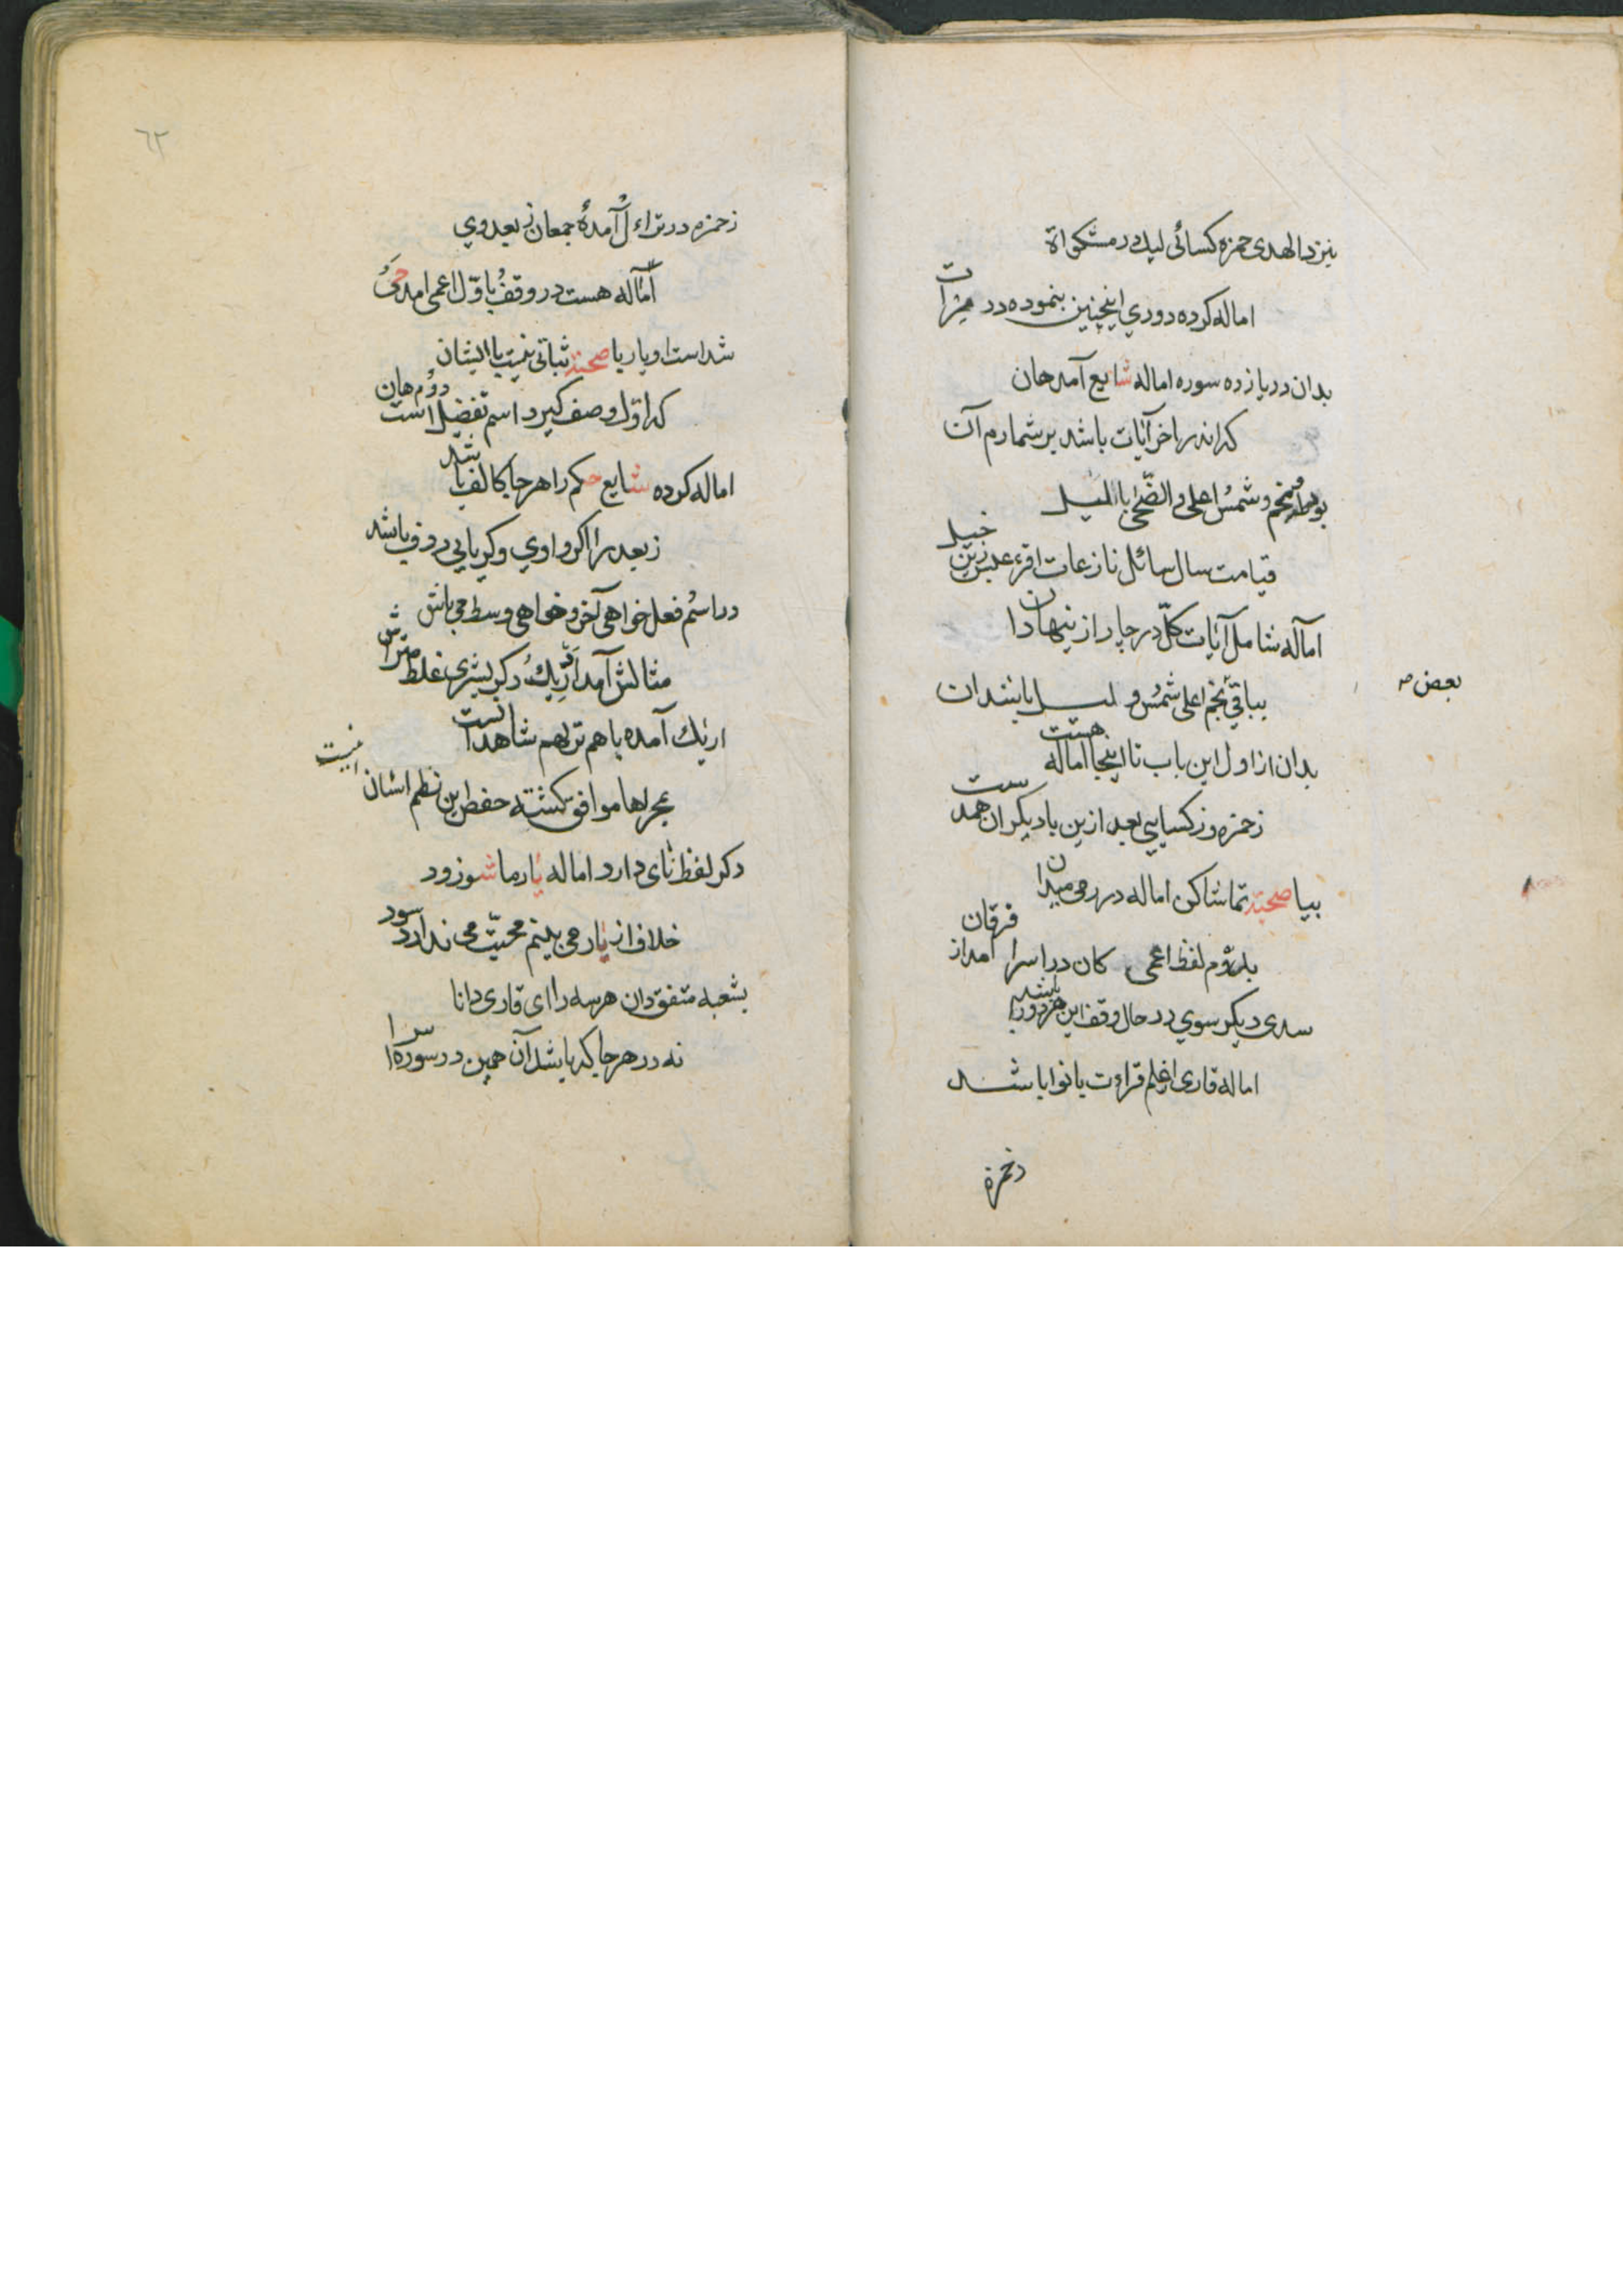 بنزد الهدی حمزه کسائی لیك در مشکواة
اماله کرده دوري اینچنین بنموده در مزجات
بدان در یازده سوره اماله شایع آمد هان
که اندر اخر آیات باشد بر شمارم آن
بود طه و نجم و شمس اعلی و الضحی با اللیل
قیامت سال سائل نازعات اقرء عبس زین خیل
اماله شامل آیات کل در چار از نیها دان
بباقی نجم اعلی شمس و لیل باشد ان
بعض
بدان از اول این باب تا اینجا اماله هست
زحمزه وز کسایی بعد ازین با دیکران همدست
بیا صحبته تماشا کن اماله در رمی میدان
بدوم لفظ اعمی کان در اسرا امد از فرقان
سدی دیکر سوي در حال وقف این هر دو را باشد
اماله قاری از علم قراءت با نوا باشد
زحمزه
٦٢
زحمزه در تراءا آمده جمعان ز بعد وي
اماله هست در وقف با اول اعمی امد حمی
شد است او یار با صحبته ثباتی نیست با ایشان
که اول وصف کیرد اسم تفضیل است دوم هان
اماله کرده شایع حکم را هر جا که الف باشد
ز بعد را اکر واوي و کر یایی در و باشد
در اسم فعل خواهی آخر و خواهی وسط می باش
مثالش آمد ادریك دکر بشری غلط متراش
اریك آمده با هم تریهم شاهد انست
بمجریها موافق کشته حفص این نظم اشان اینست
دکر لفظ نای دارد اماله یار ما شو زود
خلاف از یار می بینم محبت می ندارد سود
بشعبه متفق دان هر سه را ای قاری دانا
نه در هر جا که باشد آن همین در سوره اسرا